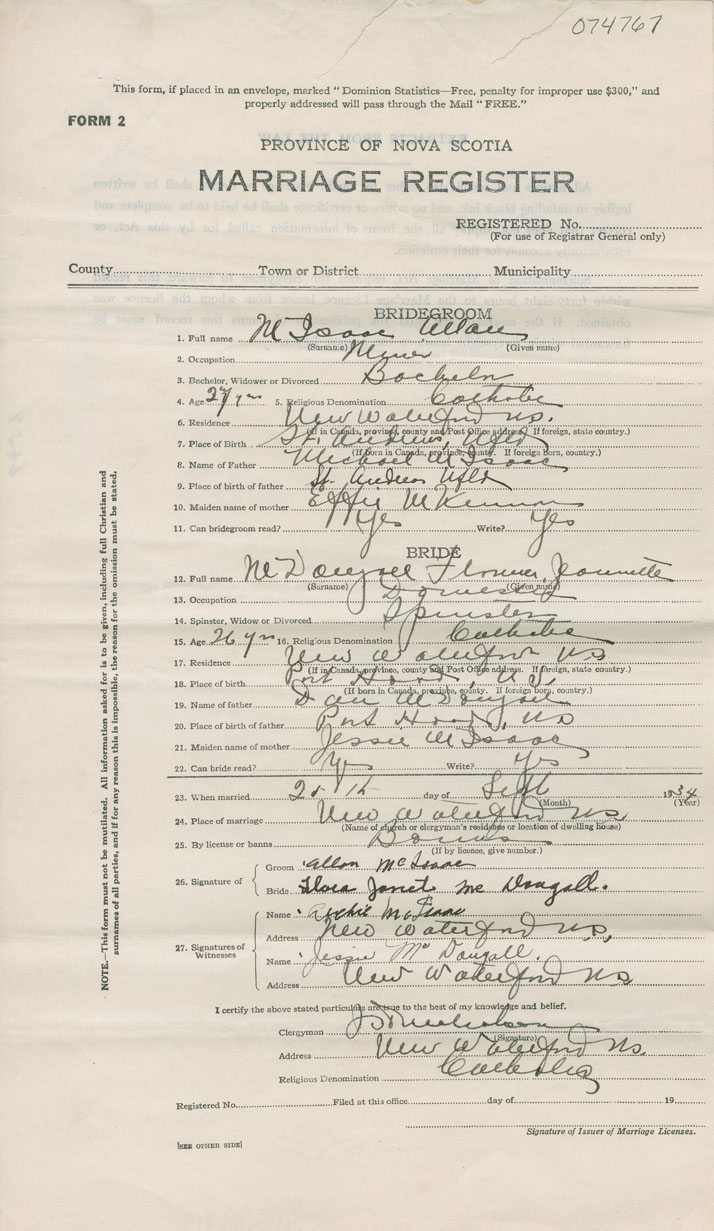 074767
This form, if placed in an envelope, marked "Dominion Statistics—Free, penalty for improper use $300," and
properly addressed will pass through the Mail "FREE."
FORM 2
PROVINCE OF NOVA SCOTIA
MARRIAGE REGISTER
REGISTERED No.
(For use of Registrar General only)
County Town or District Municipality
BRIDEGROOM
1. Full name McIsaac Allan
(Surname) (Given name)
2. Occupation Miner
3. Bachelor, Widower or Divorced Bachelor
4. Age 27 yrs 5. Religious Denomination Catholic
6. Residence New Waterford N.S.
(If in Canada, province, county and Post Office address. If foreign, state country.)
7. Place of Birth St. Andrews, Nfld
(If born in Canada, province, county. If foreign born, country.)
8. Name of Father Michael McIsaac
9. Place of birth of father St. Andrews Nfld
10. Maiden name of mother Effie McKinnon
11. Can bridegroom read? Yes Write? Yes
BRIDE
12. Full name McDougall Florence Jeannette
(Surname) (Given name)
13. Occupation Domestic
14. Spinster, Widow or Divorced Spinster
15. Age 26 yrs 16. Religious Denomination Catholic
17. Residence New Waterford NS
(If in Canada, province, county and Post Office address. If foreign, state country.)
18. Place of birth Port Hood, N.S.
(If born in Canada, province, county. If foreign born, country.)
19. Name of father Dan McDougall
20. Place of birth of father Port Hood, NS
21. Maiden name of mother Jessie McIsaac
22. Can bride read? Yes Write? Yes
23. When married day of Sept 1934
(Month) (Year)
24. Place of marriage New Waterford NS
(Name of church or clergyman's residence or location of dwelling house)
25. By license or banns Banns
(If by licence, give number.)
26. Signature of
Groom Allan McIsaac
Bride Flora Janet McDougall.
27. Signatures of Witnesses
Name Archie McIsaac
Address New Waterford NS,
Name Jessie McDougall.
Address New Waterford NS
I certify the above stated particulars are true to the best of my knowledge and belief.
Clergyman
(Signature)
Address New Waterford NS.
Religious Denomination Catholic
Registered No. Filed at this office day of 19
Signature of Issuer of Marriage Licenses.
[SEE OTHER SIDE]
NOTE.—This form must not be mutilated. All information asked for is to be given, including full Christian and
surnames of all parties, and if for any reason this is impossible, the reason for the omission must be stated.